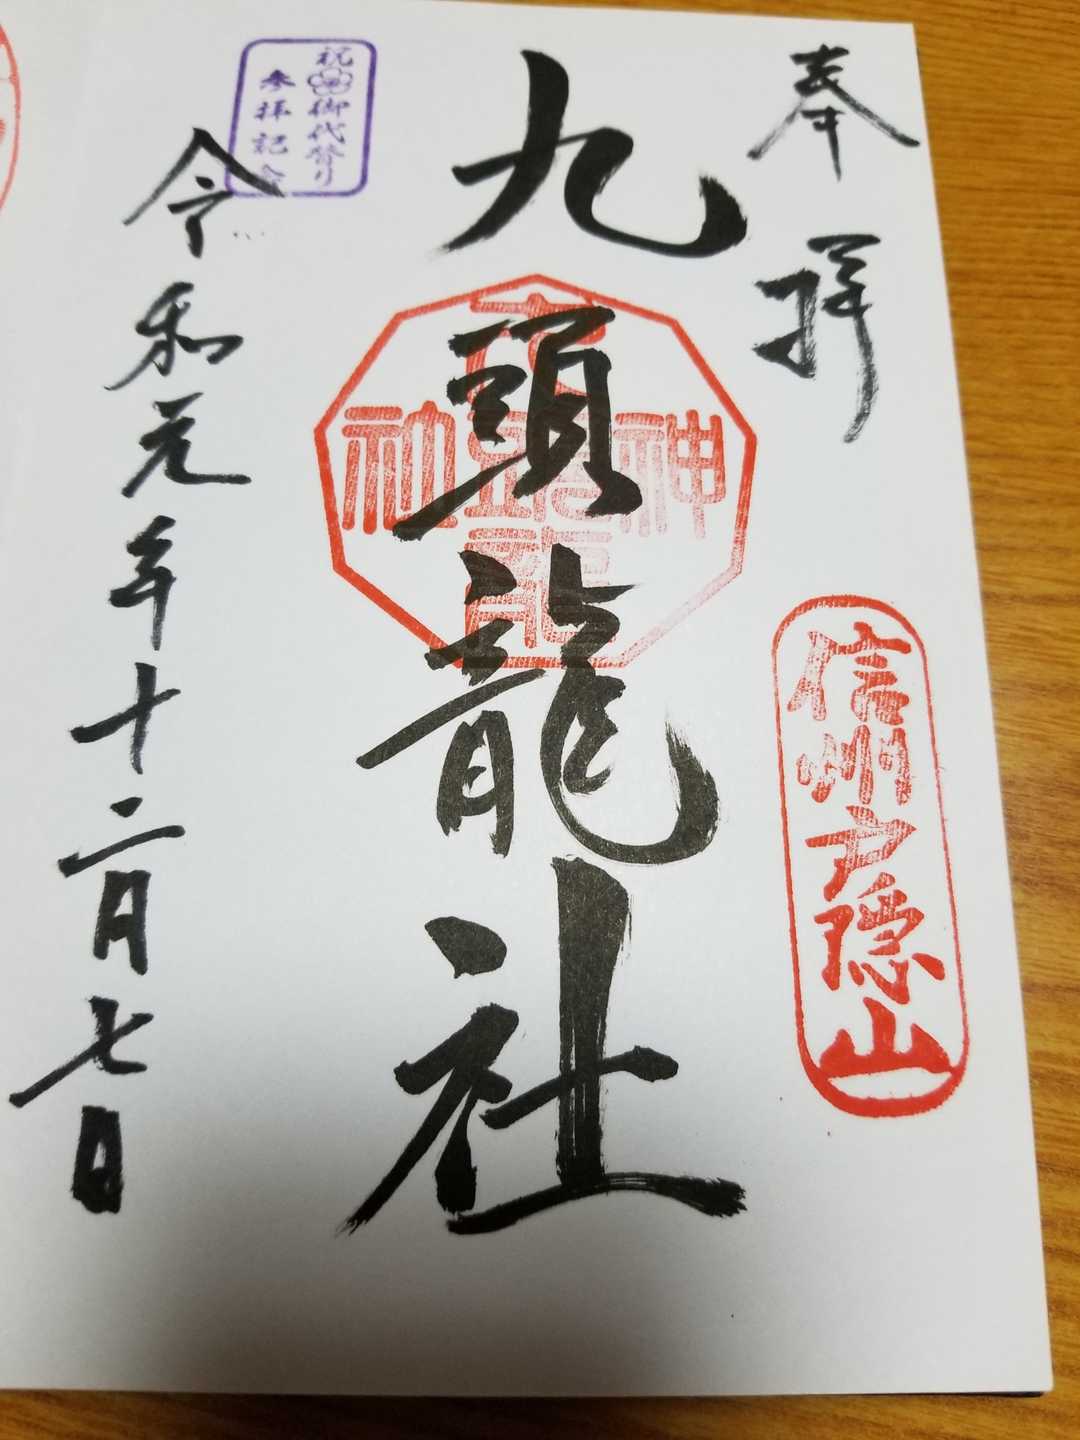 奉拝
信州戸隠山
九頭龍社
九頭龍神社
祝御代替り
参拝記念
令和元年十二月七日